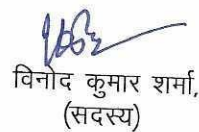 विनोद कुमार शर्मा,
(सदस्य)